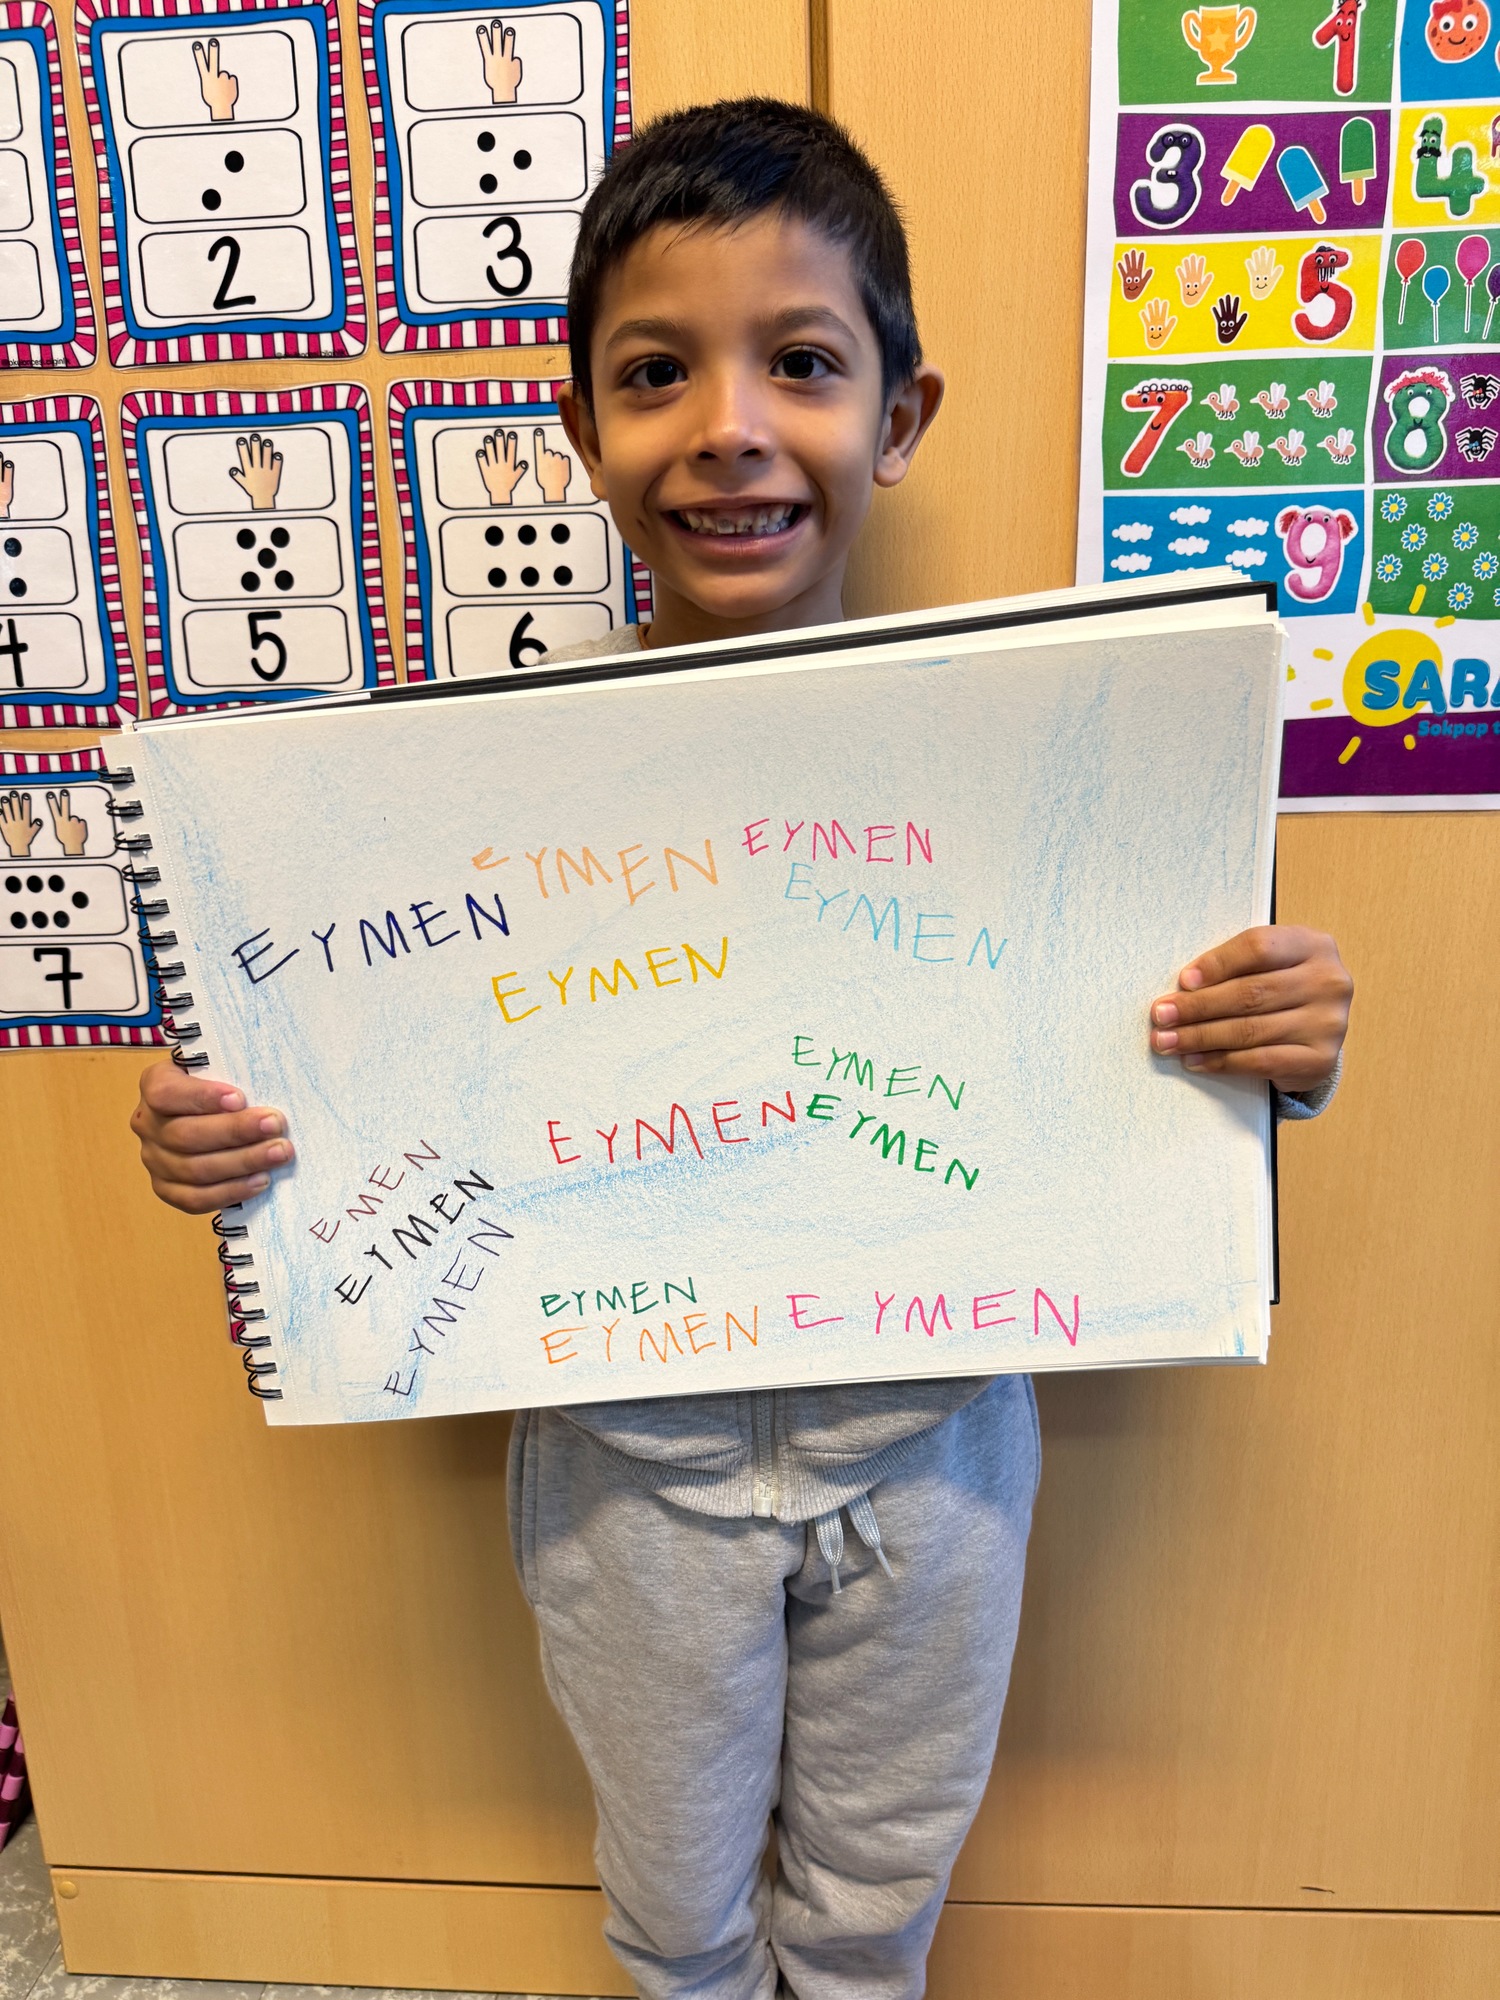 2
3
4
5
6
7
1
3
4
5
7
8
9
SARA
Sokpop t
EYMEN
EYMEN
EYMEN
EYMEN
EYMEN
EYMEN
EYMEN
EYMEN
EMEN
EYMEN
EYMEN
EYMEN
EYMEN
EYMEN